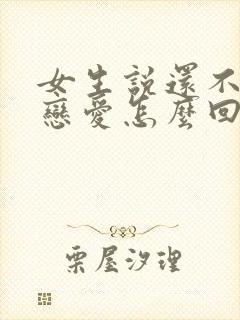 女生說還不
戀愛怎麼回
栗屋汐理